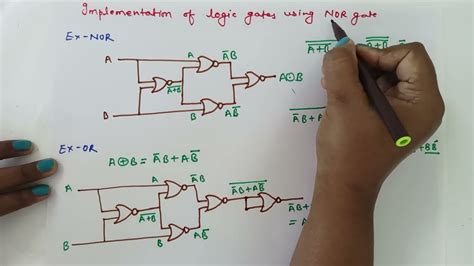 Implementation of logic gates using NOR gate
Ex-NOR
A
A
A̅B
A+B
A⊙B
B
B
AB̅
Ex-OR
A⊕B = A̅B + AB̅
A
A
A̅B
A̅B+AB̅
A+B
B
B
AB̅